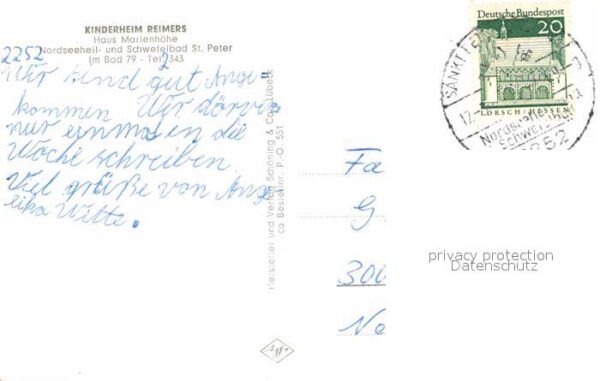 KINDERHEIM REIMERS
Haus Marienhöhe
2252 Nordseeheil- und Schwefelbad St. Peter
(m Bad 79 - Tel. 2343
Wir sind gut Ange=
kommen Wir dörven
nur einmal in die
Woche schreiben.
Viel grüße von Ang
elika Witte.
Hersteller und Verlag Schöning & Co., Lübeck
Bestellnr. P.O. 551
Deutsche Bundespost
20
LORSCH/HESSEN
SANKT PETER
17.
Nordseeheil-
Schwefelbad
2252
Fa
G
300
No
Agfa
privacy protection
Datenschutz